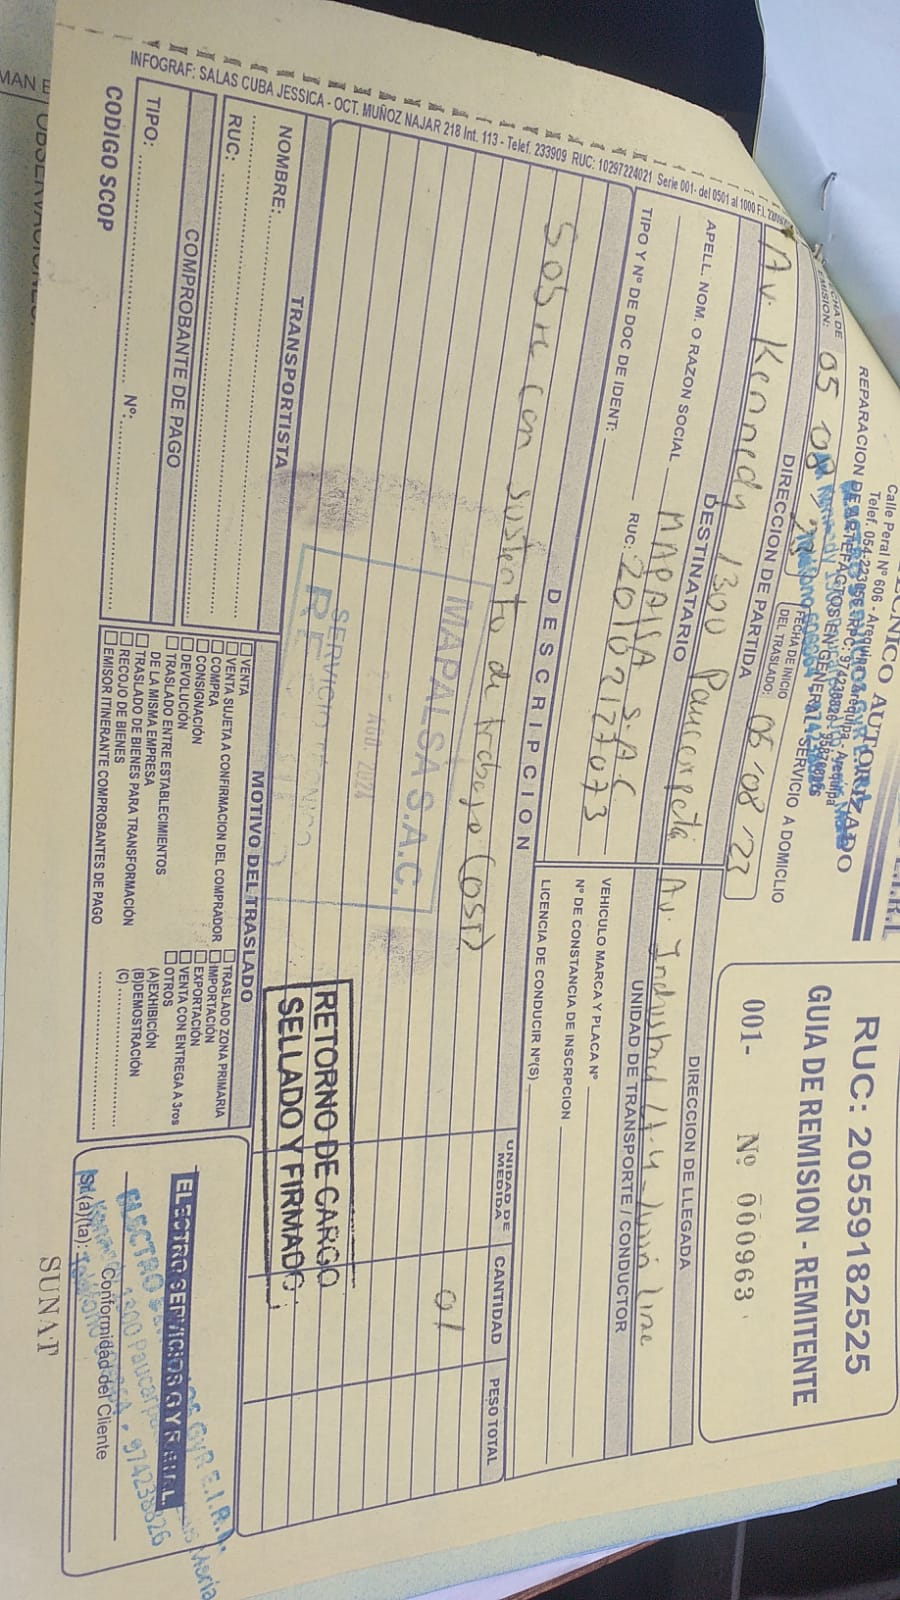 TECNICO AUTORIZADO
E.I.R.L
Calle Peral Nº 606 - Arequipa
REPARACION DE ARTEFACTOS EN GENERAL
SERVICIO A DOMICILIO
RUC: 20559182525
GUIA DE REMISION - REMITENTE
001- Nº 000963
FECHA DE EMISION: 05 08 23
FECHA DE INICIO DEL TRASLADO: 05 08 23
DIRECCION DE PARTIDA
Av. Kennedy 1300 Paucarpata
DIRECCION DE LLEGADA
DESTINATARIO
APELL. NOM. O RAZON SOCIAL MAPALSA S.A.C
TIPO Y Nº DE DOC DE IDENT: RUC: 20102127073
UNIDAD DE TRANSPORTE / CONDUCTOR
VEHICULO MARCA Y PLACA Nº
Nº DE CONSTANCIA DE INSCRPCION
LICENCIA DE CONDUCIR Nº(S)
DESCRIPCION
UNIDAD DE MEDIDA
CANTIDAD
PESO TOTAL
Sobre con sustento de trabajo (OST) 01
MAPALSA S.A.C.
AGO. 2024
SERVICIO TECNICO
RETORNO DE CARGO
SELLADO Y FIRMADO
TRANSPORTISTA
NOMBRE:
RUC:
COMPROBANTE DE PAGO
TIPO: Nº:
CODIGO SCOP
MOTIVO DEL TRASLADO
VENTA
VENTA SUJETA A CONFIRMACION DEL COMPRADOR
COMPRA
CONSIGNACIÓN
DEVOLUCIÓN
TRASLADO ENTRE ESTABLECIMIENTOS
DE LA MISMA EMPRESA
TRASLADO DE BIENES PARA TRANSFORMACIÓN
RECOJO DE BIENES
EMISOR ITINERANTE COMPROBANTES DE PAGO
TRASLADO ZONA PRIMARIA
IMPORTACIÓN
EXPORTACIÓN
VENTA CON ENTREGA A 3ros
OTROS
(A)EXHIBICIÓN
(B)DEMOSTRACIÓN
(C)
ELECTRO SERVICIOS G Y R E.I.R.L.
ELECTRO
GYR E.I.R.L.
1300 Paucarpata
974238826
Conformidad del Cliente
Sr.(a)(ta):
SUNAT
INFOGRAF: SALAS CUBA JESSICA - OCT. MUÑOZ NAJAR 218 Int. 113 - Telef. 233909 RUC: 10297224021 Serie 001- del 0501 al 1000 F.I.